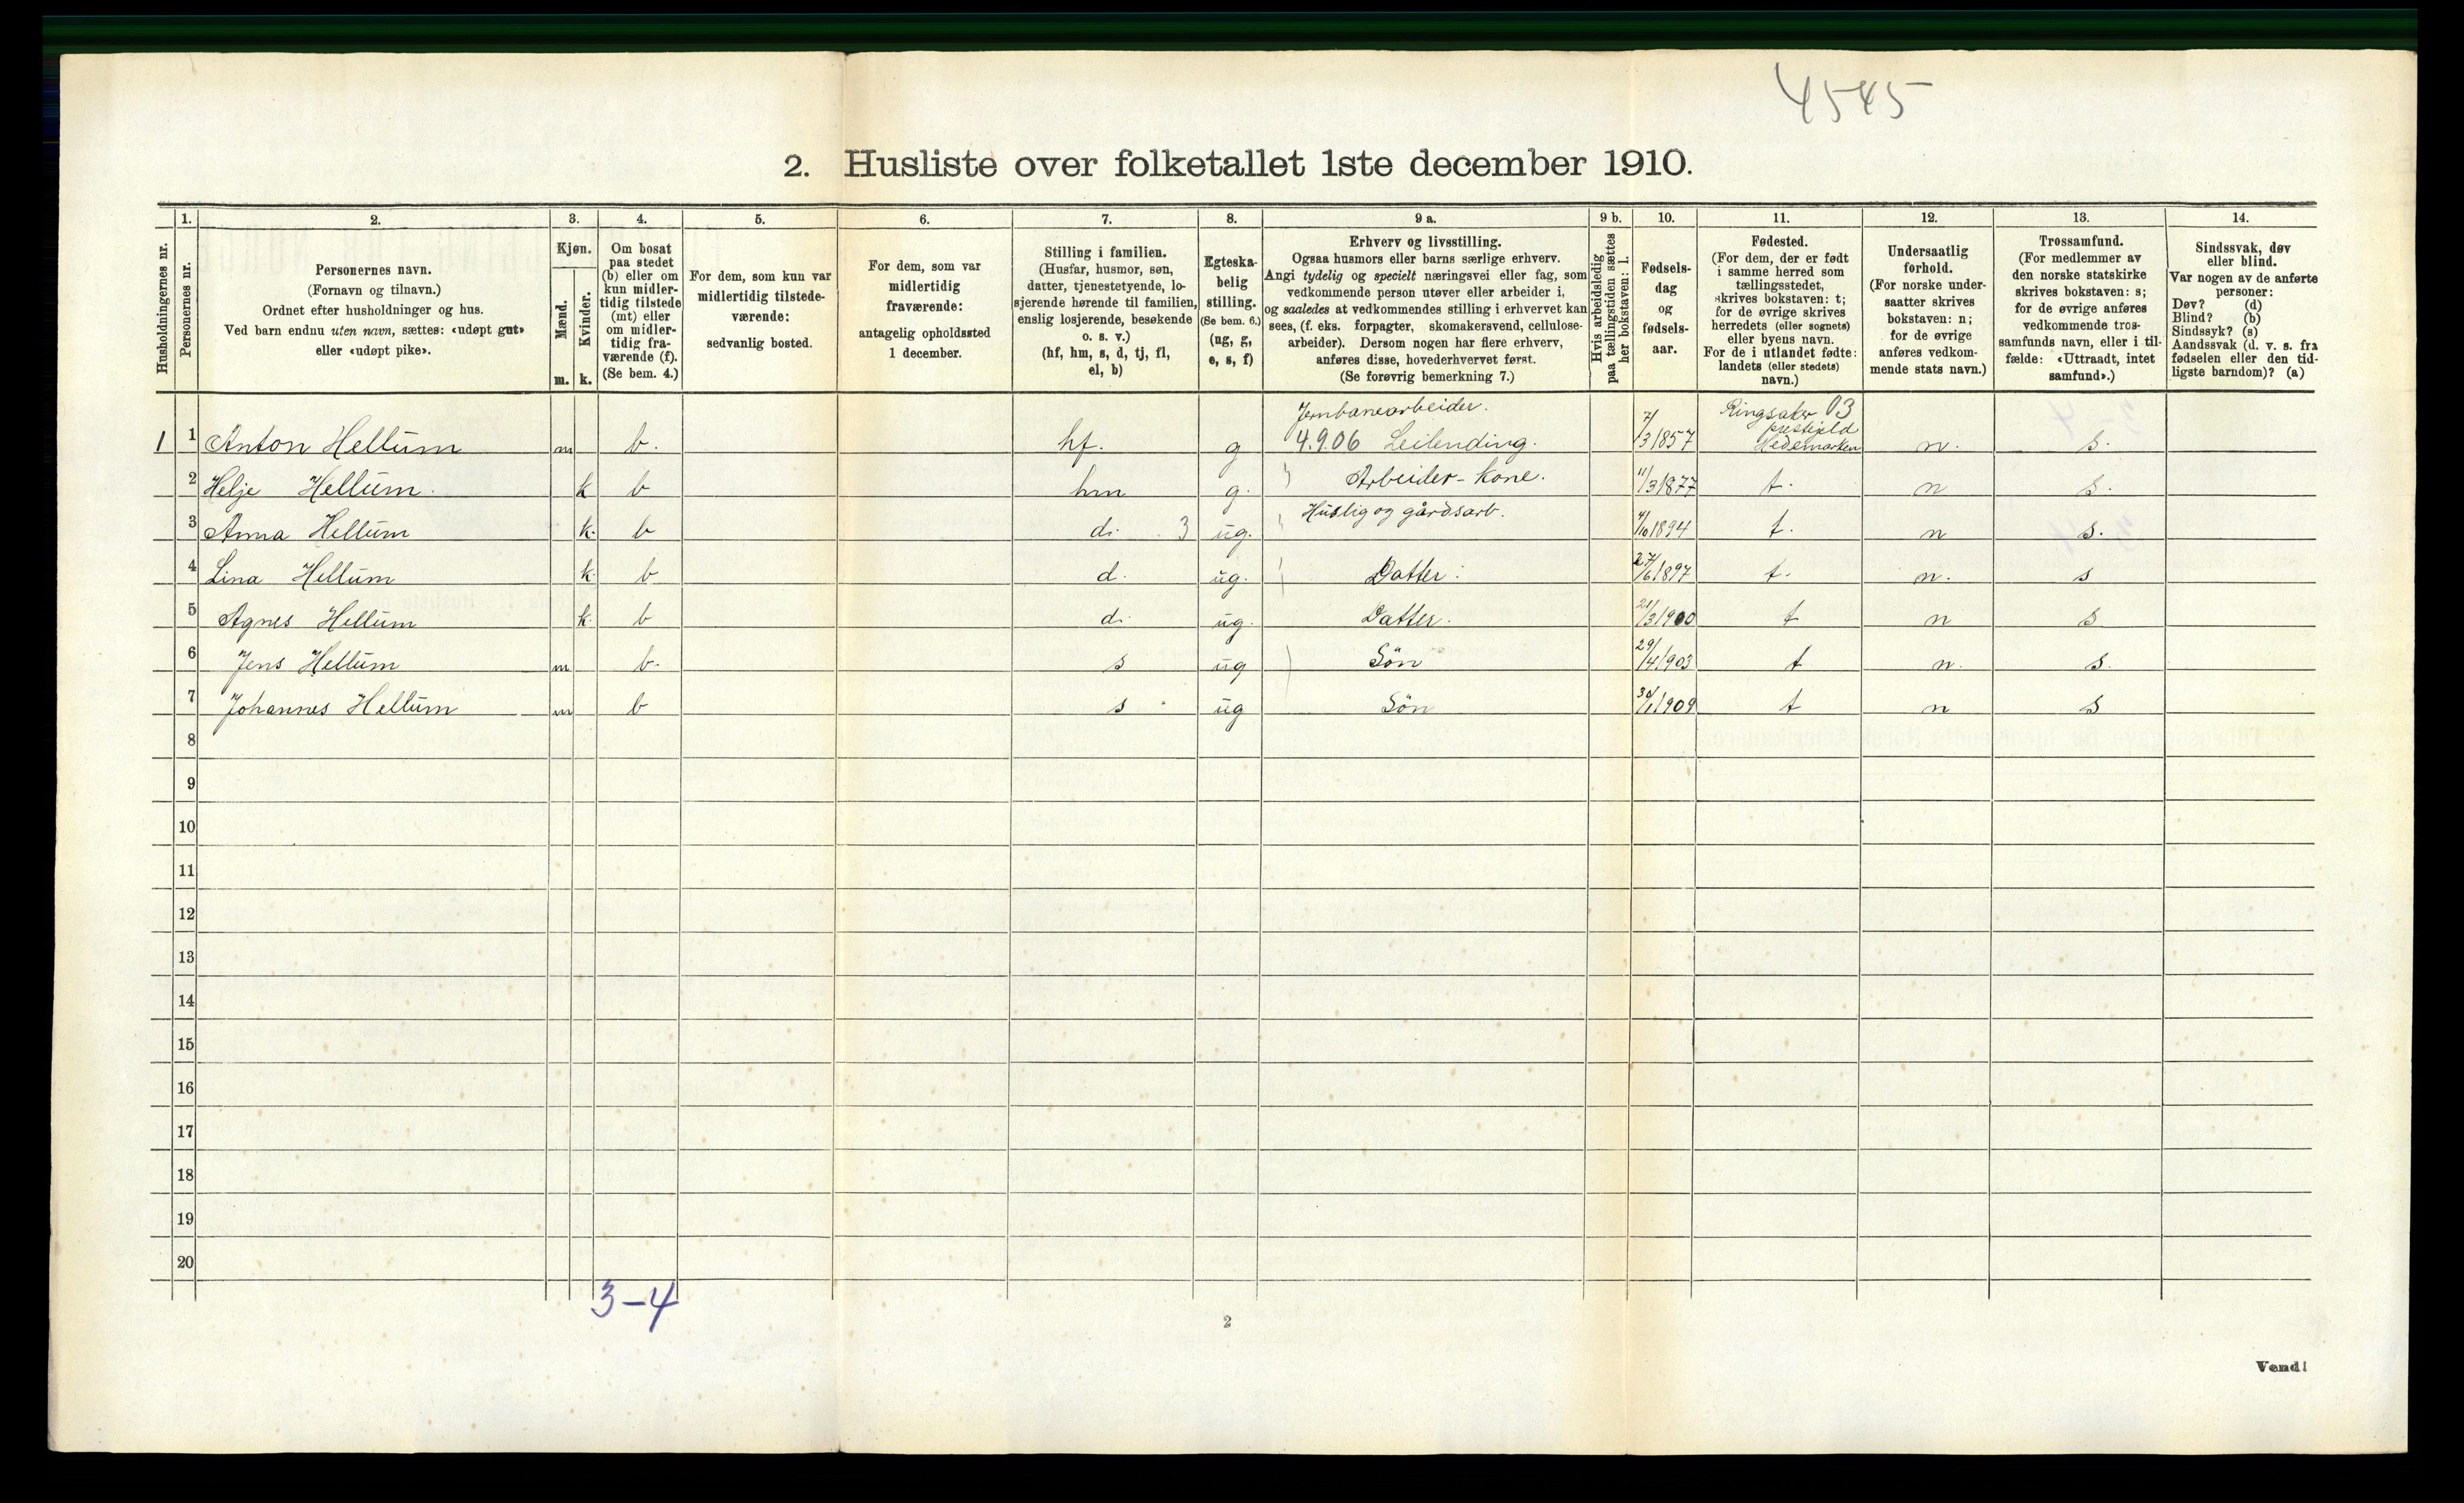 4545
2. Husliste over folketallet 1ste december 1910.
Husholdningernes nr.
1.
Personernes nr.
2.
Personernes navn.
(Fornavn og tilnavn.)
Ordnet efter husholdninger og hus.
Ved barn endnu uten navn, sættes: «udøpt gut»
eller «udøpt pike».
3.
Kjøn.
Mænd.
m.
Kvinder.
k.
4.
Om bosat
paa stedet
(b) eller om
kun midler-
tidig tilstede
(mt) eller
om midler-
tidig fra-
værende (f).
(Se bem. 4.)
5.
For dem, som kun var
midlertidig tilstede-
værende:
sedvanlig bosted.
6.
For dem, som var
midlertidig
fraværende:
antagelig opholdssted
1 december.
7.
Stilling i familien.
(Husfar, husmor, søn,
datter, tjenestetyende, lo-
sjerende hørende til familien,
enslig losjerende, besøkende
o. s. v.)
(hf, hm, s, d, tj, fl,
el, b)
8.
Egteska-
belig
stilling.
(Se bem. 6.)
(ug, g,
e, s, f)
9 a.
Erhverv og livsstilling.
Ogsaa husmors eller barns særlige erhverv.
Angi tydelig og specielt næringsvei eller fag, som
vedkommende person utøver eller arbeider i,
og saaledes at vedkommendes stilling i erhvervet kan
sees, (f. eks. forpagter, skomakersvend, cellulose-
arbeider). Dersom nogen har flere erhverv,
anføres disse, hovederhvervet først.
(Se forøvrig bemerkning 7.)
9 b.
Hvis arbeidsledig
paa tællingstiden sættes
her bokstaven: l.
10.
Fødsels-
dag
og
fødsels-
aar.
11.
Fødested.
(For dem, der er født
i samme herred som
tællingsstedet,
skrives bokstaven: t;
for de øvrige skrives
herredets (eller sognets)
eller byens navn.
For de i utlandet fødte:
landets (eller stedets)
navn.)
12.
Undersaatlig
forhold.
(For norske under-
saatter skrives
bokstaven: n;
for de øvrige
anføres vedkom-
mende stats navn.)
13.
Trossamfund.
(For medlemmer av
den norske statskirke
skrives bokstaven: s;
for de øvrige anføres
vedkommende tros-
samfunds navn, eller i til-
fælde: «Uttraadt, intet
samfund».)
14.
Sindssvak, døv
eller blind.
Var nogen av de anførte
personer:
Døv? (d)
Blind? (b)
Sindssyk? (s)
Aandssvak (d. v. s. fra
fødselen eller den tid-
ligste barndom)? (a)
Jernbanearbeider. Ringsaker 03
prestgjeld
1 1 Anton Hellum m b. hf. g 4.9.06 Leilending. 7/3 1857 Hedemarken n. s.
2 Helje Hellum. k b hm g. Arbeider-kone. 11/3 1877 t. n s.
3 Anna Hellum k. b d. 3 ug. Huslig og gårdsarb. 4/10 1894 t. n s.
4 Lina Hellum k. b d. ug. Datter. 27/6 1897 t. n. s
5 Agnes Hellum k. b d. ug. Datter. 21/3 1900 t n s
6 Jens Hellum m b. s ug Sön 29/4 1903 t n. s.
7 Johannes Hellum m b s ug Sön 30/1 1909 t n s
8
9
10
11
12
13
14
15
16
17
18
19
20
3-4
2
Vend!